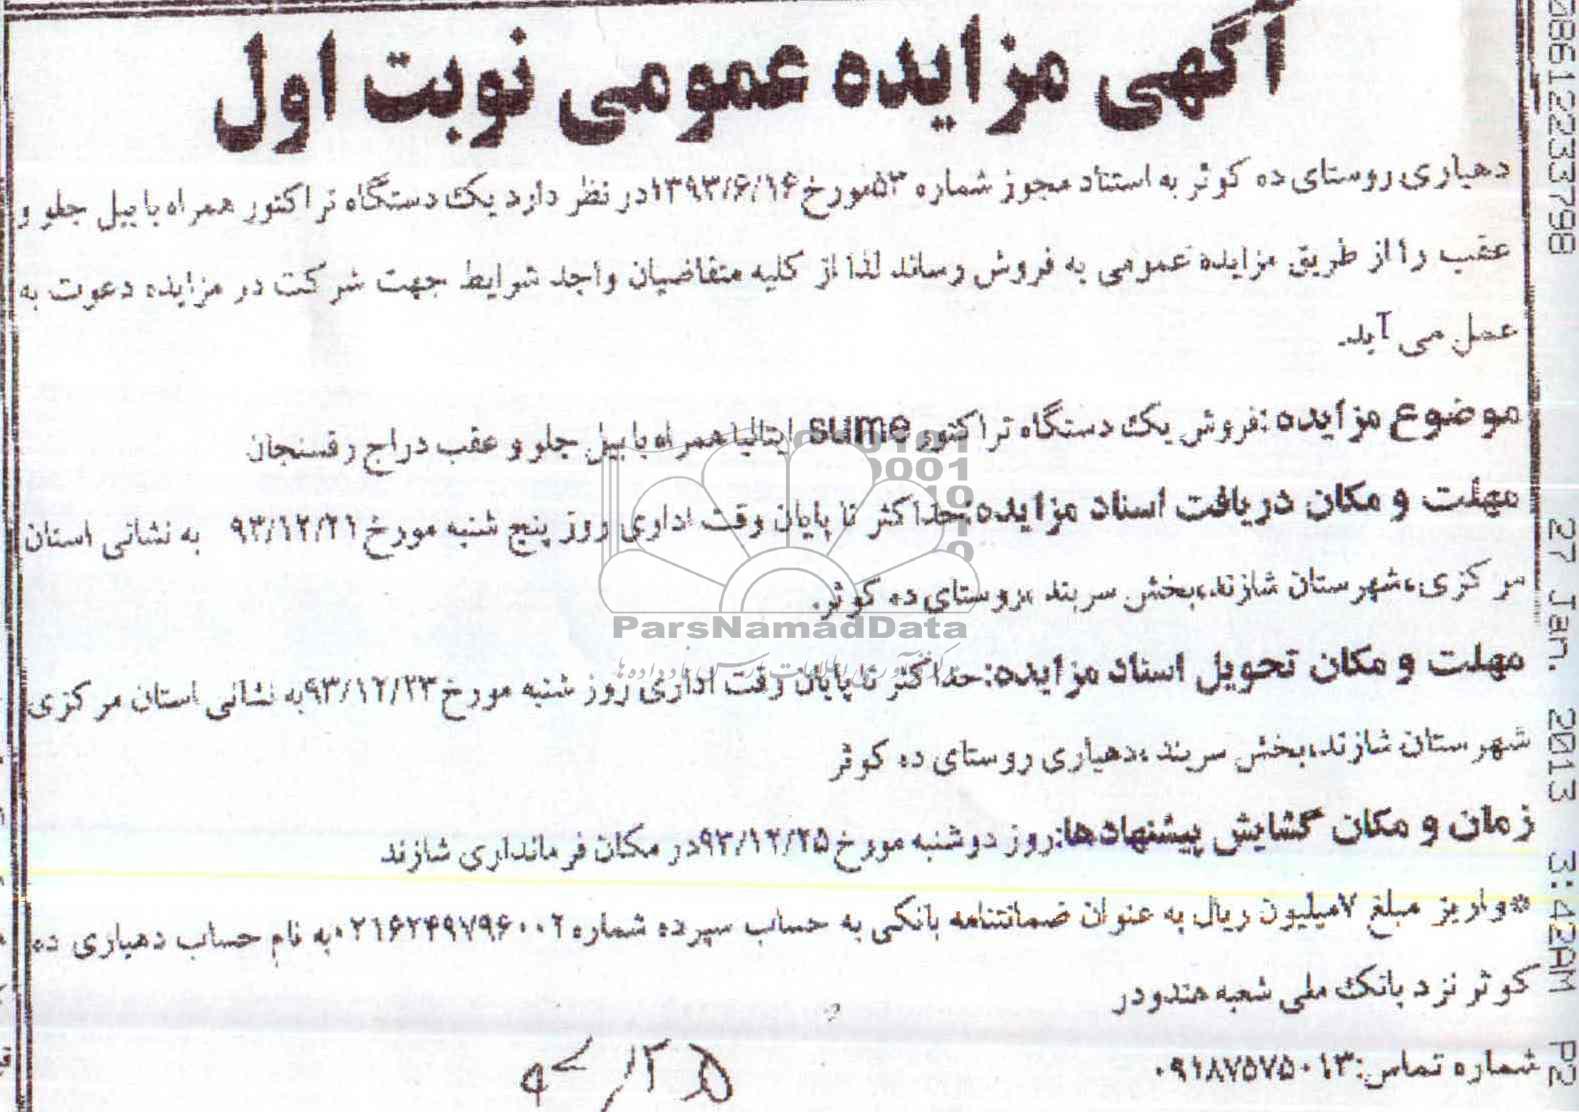 آگهی مزایده عمومی نوبت اول
دهیاری روستای ده کوثر به استناد مجوز شماره ۵۳مورخ۱۳۹۳/۶/۱۶در نظر دارد یک دستگاه تراکتور همراه با بیل جلو و
عقب را از طریق مزایده عمومی به فروش رساند لذا از کلیه متقاضیان واجد شرایط جهت شرکت در مزایده دعوت به
عمل می آید.
موضوع مزایده:فروش یک دستگاه تراکتور sume ایتالیا همراه با بیل جلو و عقب دراج رفسنجان
مهلت و مکان دریافت اسناد مزایده:حداکثر تا پایان وقت اداری روز پنج شنبه مورخ ۹۳/۱۲/۲۱ به نشانی استان
مرکزی،شهرستان شازند،بخش سربند ،روستای ده کوثر.
ParsNamadData
مهلت و مکان تحویل اسناد مزایده:حداکثر تا پایان وقت اداری روز شنبه مورخ ۹۳/۱۲/۲۳به نشانی استان مرکزی
شهرستان شازند،بخش سربند ،دهیاری روستای ده کوثر
زمان و مکان گشایش پیشنهادها:روز دوشنبه مورخ ۹۳/۱۲/۲۵در مکان فرمانداری شازند
*واریز مبلغ ۷میلیون ریال به عنوان ضمانتنامه بانکی به حساب سپرده شماره ۰۲۱۶۲۴۹۷۹۶۰۰۲به نام حساب دهیاری ده
کوثر نزد بانک ملی شعبه هندودر
شماره تماس:۰۹۱۸۷۵۷۵۰۱۳
08612233798
27 Jan. 2013 3:42AM P2